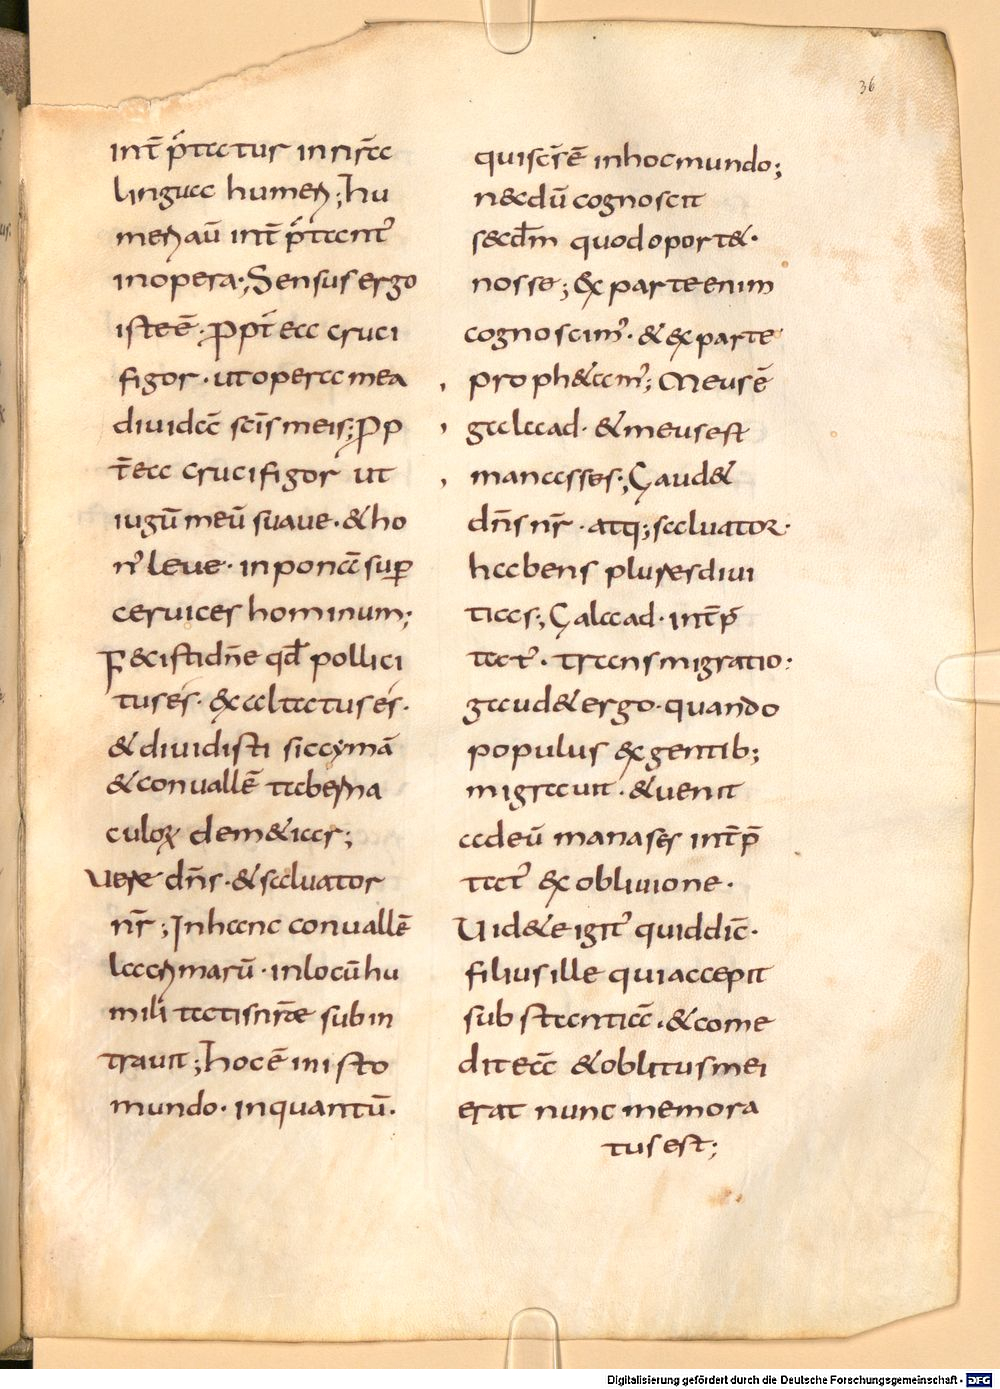 36
int̄ p̄tatur in nr̄a
lingua humerꝯ; hu
merꝯ aū int̄ p̄tant᷒
in opera·; Sensus ergo
iste ē· Propt̄ ea cruci
figor· ut opera mea
dividā scīs meis; Prop
t̄ ea crucifigor ut
iugū meū suave· & ho
n᷒ leve· in ponā sup̄
cervices hominum;
Fecisti dn̄e qd̄ pollici
tus es· exaltatus es·
& dividisti siccymā
& convallē taberna
culoꝝ demetiar;
Vere dn̄s· & salvator
nr̄; In hanc convallē
lacrymarū· in locū hu
militatis nr̄ae subin
travit; hoc ē in isto
mundo· in quantū·
quis cr̄s ē in hoc mundo;
necdū cognoscit
secdm̄ quod oportet·
nosse; Ex parte enim
cognoscim᷒· & ex parte
prophetam᷒; Meus ē
galaad· & meus est
manasses·; Gaudet
dn̄s nr̄· atq; salvator·
habens plures divi
tias·; Galaad· int̄p̄
tat᷒· transmigratio·
gaudet ergo· quando
populus ex gentib;
migravit· & venit
ad eū manases int̄p̄
tat᷒ ex oblivione·
Videte igit᷒ quid dic̄·
filius ille qui accepit
substantiā· & come
dit eā & oblitus mei
erat nunc memora
tus est;
Digitalisierung gefördert durch die Deutsche Forschungsgemeinschaft - DFG